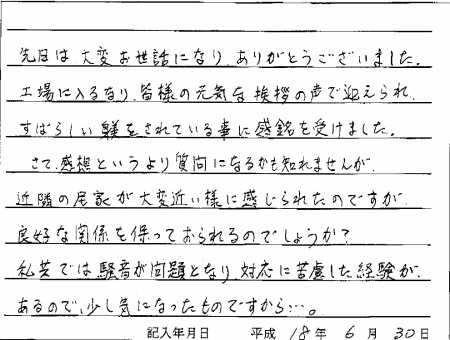 先日は大変お世話になり、ありがとうございました。
工場に入るなり、皆様の元気な挨拶の声で迎えられ、
すばらしい躾をされている事に感銘を受けました。
さて、感想というより質問になるかも知れませんが、
近隣の民家が大変近い様に感じられたのですが、
良好な関係を保っておられるのでしょうか?
私共では騒音が問題となり、対応に苦慮した経験が、
あるので、少し気になったものですから…。
記入年月日 平成 18年 6月 30日